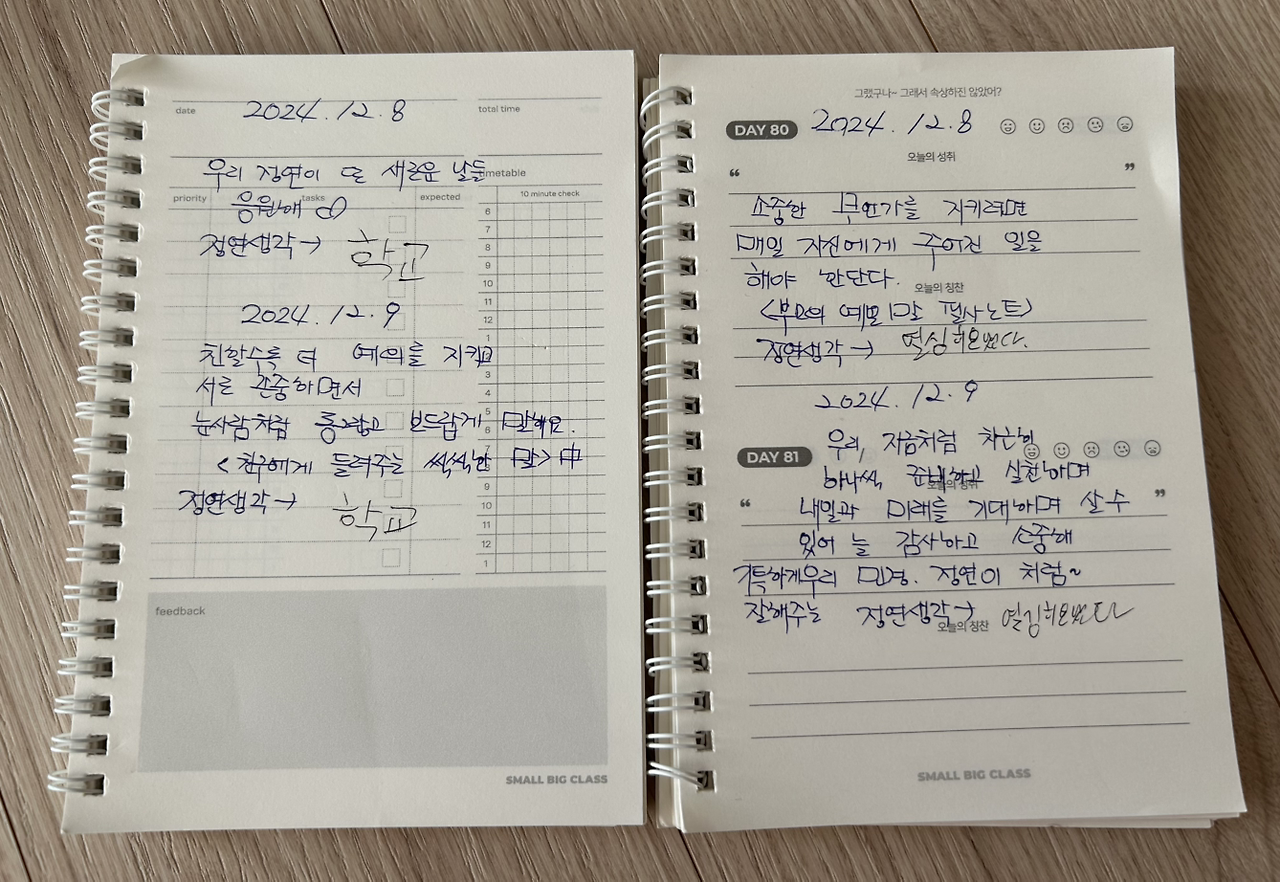 date 2024.12.8 total time
우리 정연이 또 새로운 날들
timetable
priority tasks expected 10 minute check
응원해
정연생각→ 학교
2024.12.9
친할수록 더 예의를 지키고
서로 존중하면서
눈사람처럼 동그랗고 보드랍게 말해요.
<친구에게 들려주는 씩씩한 말> 中
정연생각→ 학교
6
7
8
9
10
11
12
1
3
4
5
6
7
9
10
11
12
1
feedback
SMALL BIG CLASS
그랬구나~ 그래서 속상하진 않았어?
DAY 80 2024.12.8
오늘의 성취
“ ”
소중한 무언가를 지키려면
매일 자신에게 주어진 일을
해야 한단다.
오늘의 칭찬
<부모의 예쁜 말 필사노트>
정연생각→ 열심히요있다.
2024.12.9
우리, 지금처럼 차근히
DAY 81
하나씩 준비하고 실천하며
오늘의 성취
“ 내일과 미래를 기대하며 살 수 ”
있어 늘 감사하고 소중해
기특하게우리 민경. 정연이 처럼~
잘해주는 정연생각→
오늘의 칭찬
SMALL BIG CLASS